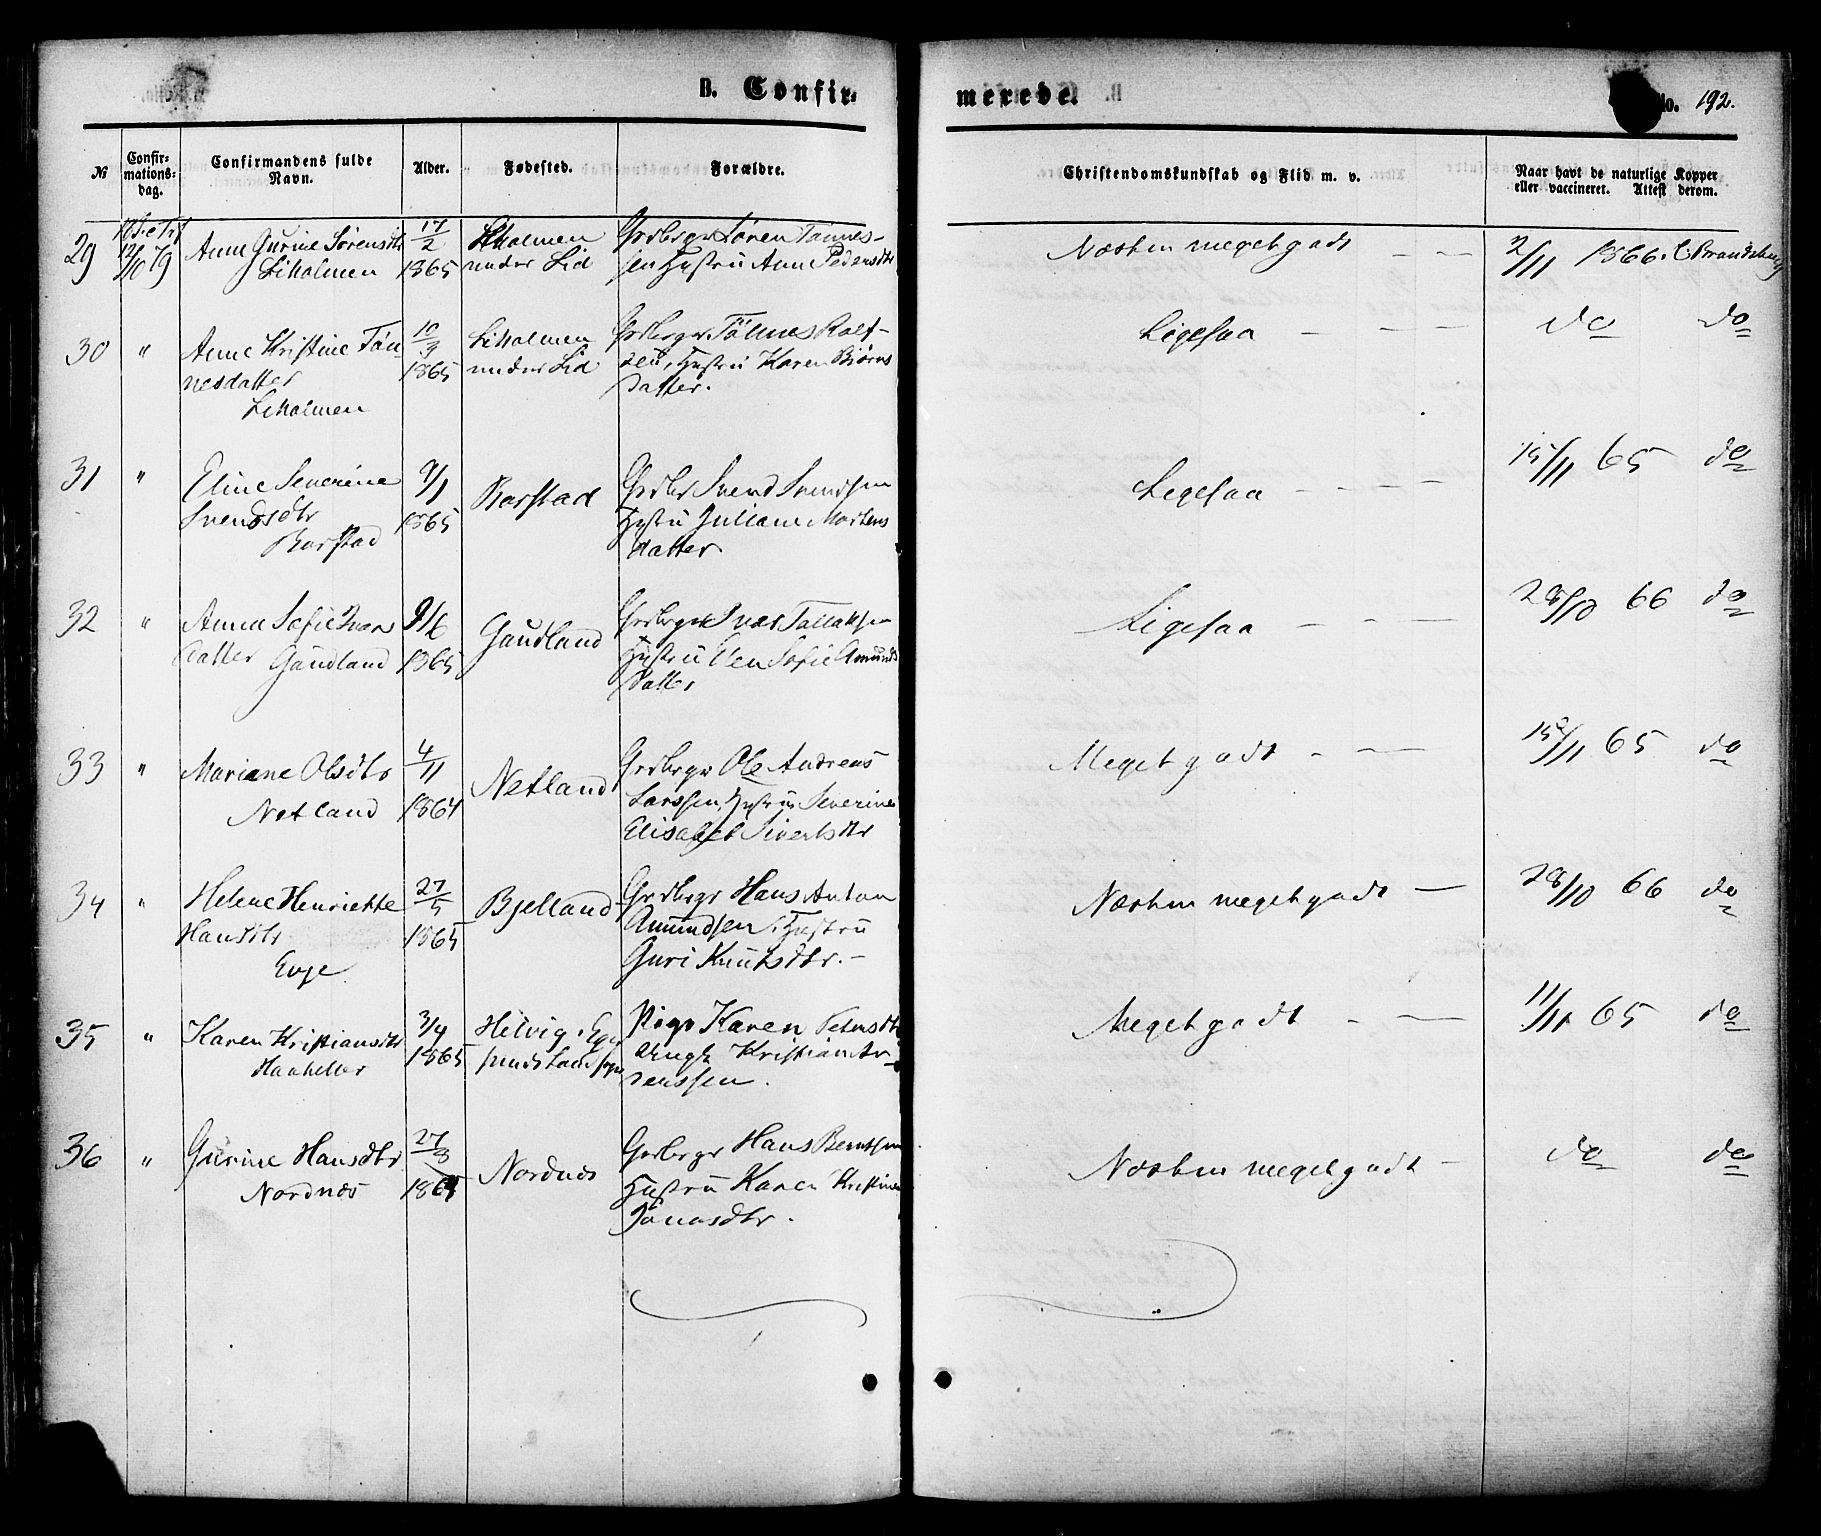 B. Confir-
merede.
No. 192.
№
Confir-
mations-
dag.
Confirmandens fulde
Navn.
Alder.
Fødested.
Forældre.
Christendomskundskab og Flid m. v.
Naar havt de naturlige Kopper
eller vaccineret. Attest derom.
29
12/10 79
Anne Gurine Sørensdtr
Liholmen
17/2
1865
Liholmen
under Lid
Grdbrgr Sören Tönnes-
sen Hustru Ane Pedersdtr
Næsten meget godt — —
2/11 1866. C. Brandeburg
30 "
Anne Kristine Tön
nesdatter
Liholmen
10/3
1865
Liholmen
under Lid
Grdbrgr Tönnes Rolf-
sen, Hustru Karen Bjørns
datter.
Ligesaa — — —
do do
31 "
Eline Severine
Svendsdtr
Barstad
9/1
1865
Barstad
Grdbr Svend Svendsen
Hustru Juliane Martens
datter
Ligesaa - - - -
15/11 65 do
32 "
Anna Sofie Ivars
datter Gaudland
9/6
1865
Gaudland
Grdbrgr Ivar Tallaksen
Hustru Elen Sofie Amunds
datter
Ligesaa — — —
28/10 66 do
33 "
Mariane Olsdtr
Netland
4/11
1864
Netland
Grdbrgr Ole Andreas
Larssen, Hustru Severine
Elisabet Sivertsdtr
Meget godt - —
15/11 65 do
34 "
Helene Henriette
Hansdtr
Evje
27/5
1865
Bjelland
Grdbrgr Hans Anton
Amundsen, Hustru
Guri Knutsdtr. —
Næsten meget godt —
28/10 66 do
35 "
Karen Kristiansdtr
Haaheller
3/4
1865
Helvig, Eger
sunds Landsogn
Pige Karen Petersdtr
Ungk Kristian Ar-
renssen.
Meget godt - —
11/11 65 do
36 "
Gurine Hansdtr
Nordnæs
27/3
1864
Nordnæs
Grdbrgr Hans Berntsen
Hustru Karen Kristine
Jonasdtr.
Næsten meget godt —
do do